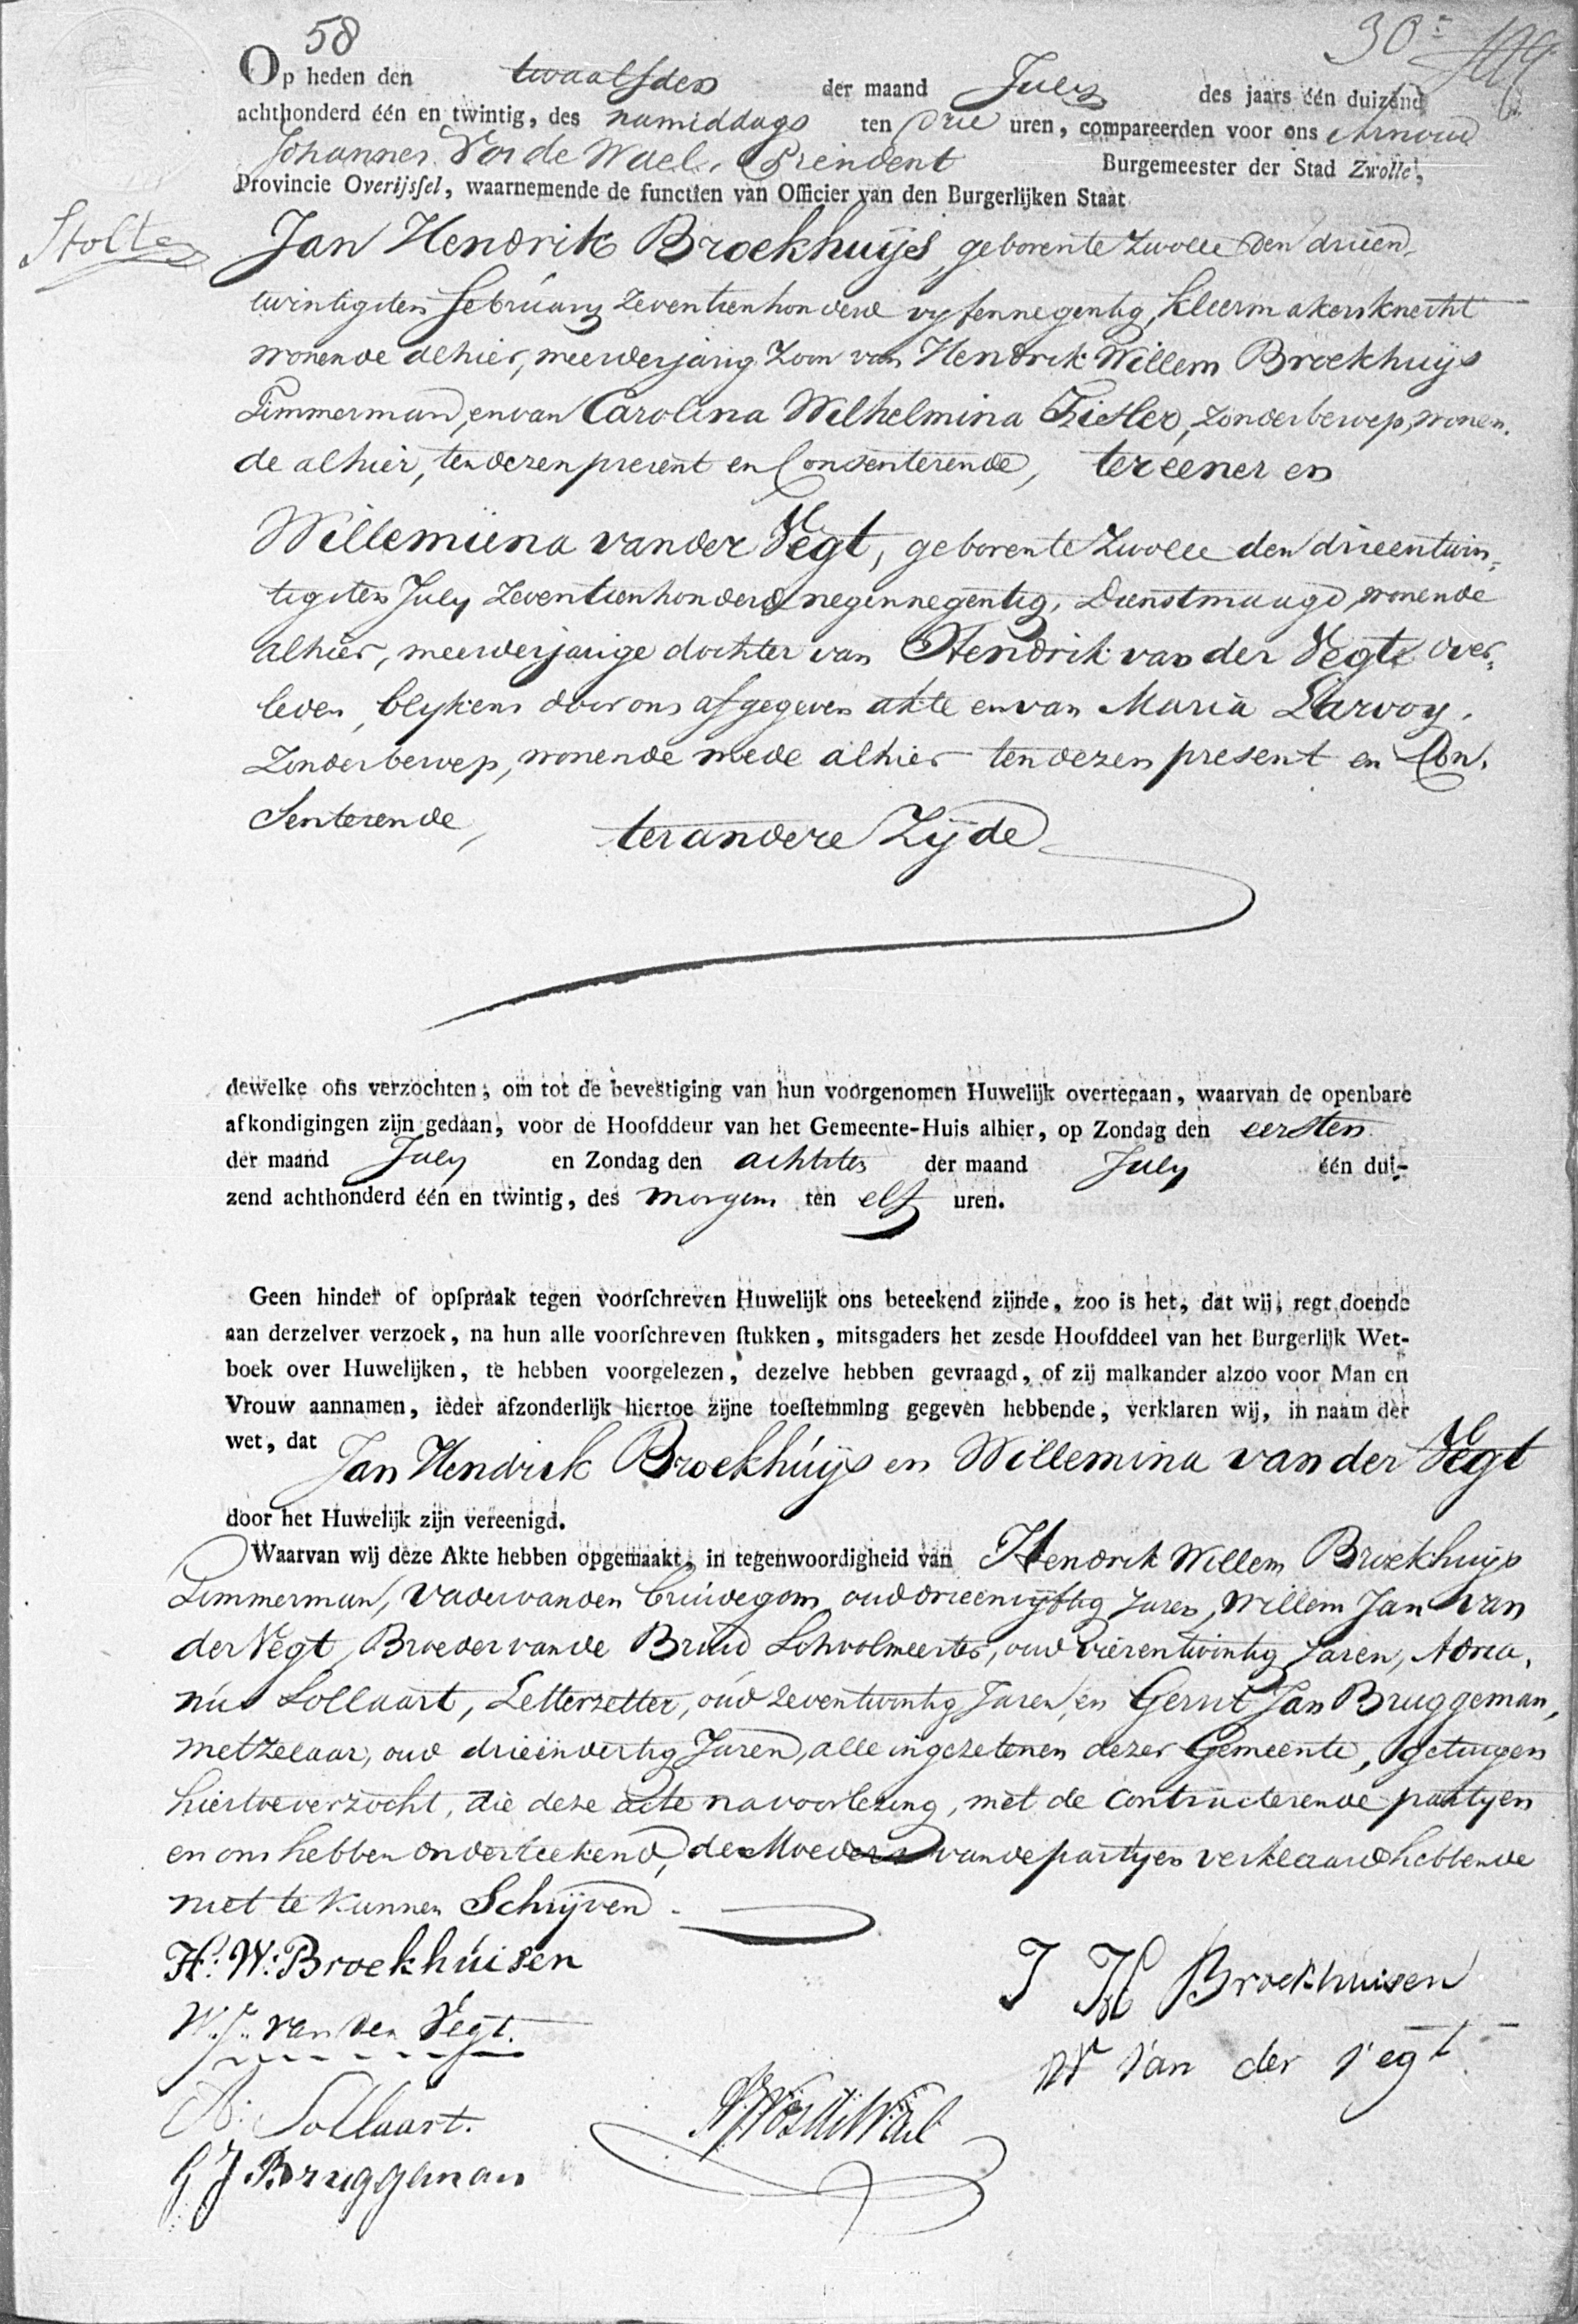 58
30
Op heden den twaalfden der maand July des jaars één duizend
achthonderd één en twintig, des namiddags ten drie uren, compareerden voor ons Arnoud
Johannes Vos de Wael, President Burgemeester der Stad Zwolle,
Provincie Overijsſel, waarnemende de functien van Officier van den Burgerlijken Staat
Stolte
Jan Hendrik Broekhuijs, geboren te Zwolle den drieen-
twintigsten february zeventienhonderd vyfennegentig, kleermakersknecht
wonende alhier, meerderjarig Zoon van Hendrik Willem Broekhuijs
Timmerman, en van Carolina Wilhelmina, zonder beroep, wonen-
de alhier, ten dezen present en Consenterende, ter eener en
Willemiina van der Vegt, geboren te Zwolle den drieentwin-
tigsten July zeventienhonderd negennegentig, Dienstmaagd, wonende
alhier, meerderjarige dochter van Hendrik van der Vegt over-
leden, blykens door ons afgegeven akte en van Maria Larvoy,
Zonder beroep, wonende mede alhier ten dezen present en Con-
senterende, ter andere Zijde
dewelke ons verzochten, om tot de bevestiging van hun voorgenomen Huwelijk overtegaan, waarvan de openbare
afkondigingen zijn gedaan, voor de Hoofddeur van het Gemeente-Huis alhier, op Zondag den eersten
der maand July en Zondag den achtsten der maand July één dui-
zend achthonderd één en twintig, des morgens ten elf uren.
Geen hinder of opſpraak tegen voorſchreven Huwelijk ons beteekend zijnde, zoo is het, dat wij, regt doende
aan derzelver verzoek, na hun alle voorſchreven ſtukken, mitsgaders het zesde Hoofddeel van het Burgerlijk Wet-
boek over Huwelijken, te hebben voorgelezen, dezelve hebben gevraagd, of zij malkander alzoo voor Man en
Vrouw aannamen, ieder afzonderlijk hiertoe zijne toeſtemming gegeven hebbende, verklaren wij, in naam der
wet, dat Jan Hendrik Broekhuijs en Willemina van der Vegt
door het Huwelijk zijn vereenigd.
Waarvan wij deze Akte hebben opgemaakt, in tegenwoordigheid van Hendrik Willem Broekhuijs
Timmerman, Vader van den bruidegom oud drieenvijftig Jaren, Willem Jan van
der Vegt, Broeder van de Bruid Schoolmeester, oud vierentwintig Jaren, Adria-
nus Sollaart, Letterzetter, oud zeventwintig Jaren, en Gerrit Jan Bruggeman,
metzelaar, oud drieënvertig Jaren, alle ingezetenen dezer Gemeente, getuigen
hiertoe verzocht, die deze acte na voorlezing, met de contracterende partyen
en ons hebben onderteekend, de Moeders van de partyen verklaard hebbende
niet te kunnen Schrijven.
H: W: Broekhuisen
J H Broekhuisen
W: J: van der Vegt.
W van der Vegt
A: Sollaart.
AJ Vos de Wael
G J Bruggeman